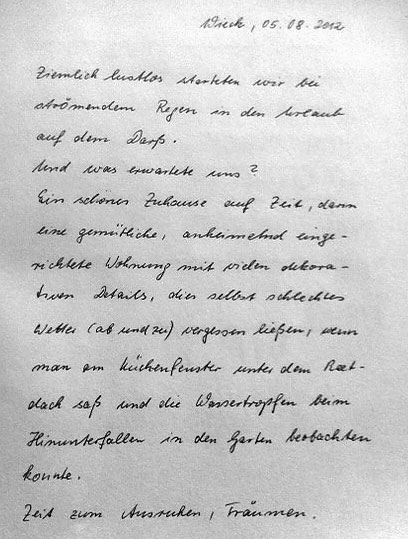 Wieck, 05.08.2012
Ziemlich lustlos starteten wir bei
strömendem Regen in den Urlaub
auf dem Darß.
Und was erwartete uns?
Ein schönes Zuhause auf Zeit, darin
eine gemütliche, anheimelnd einge-
richtete Wohnung mit vielen dekora-
tiven Details, die selbst schlechtes
Wetter (ab und zu) vergessen ließen, wenn
man am Küchenfenster unter dem Reet-
dach saß und die Wassertropfen beim
Hinunterfallen in den Garten beobachten
konnte.
Zeit zum Ausruhen, Träumen.